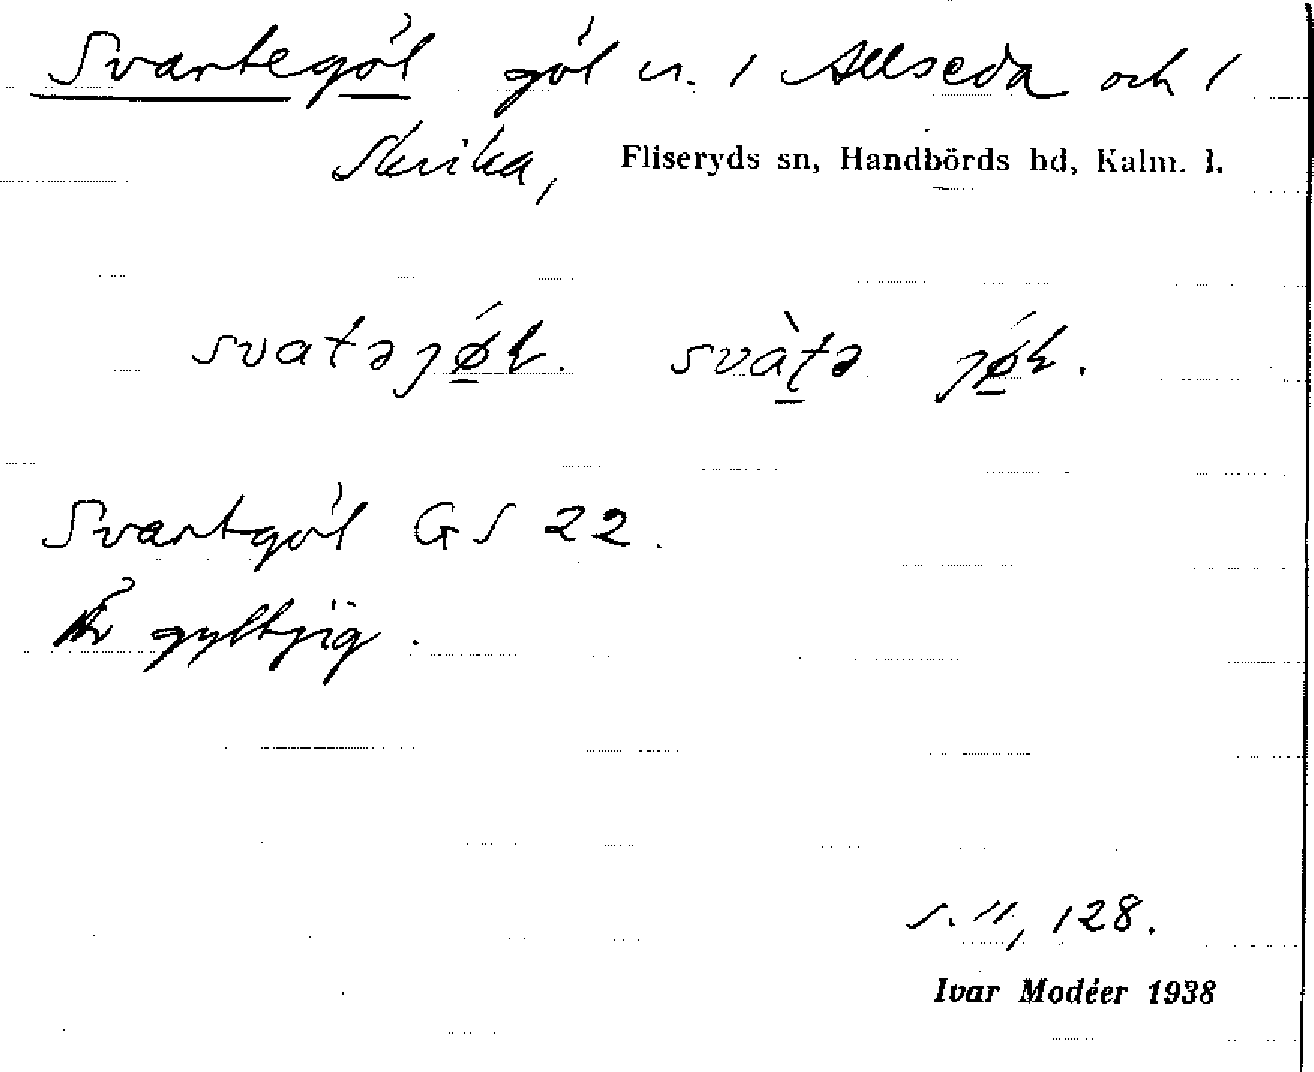 Svartegöl göl n. i Allseda och i
Skrika, Fliseryds sn, Handbörds hd, Kalm. l.
svatəjǿ̱ɫ. svà̱tə jǿ̱ɫ.
Svartgöl GS 22.
Är gylhjig.
s. 11, 128.
Ivar Modéer 1938